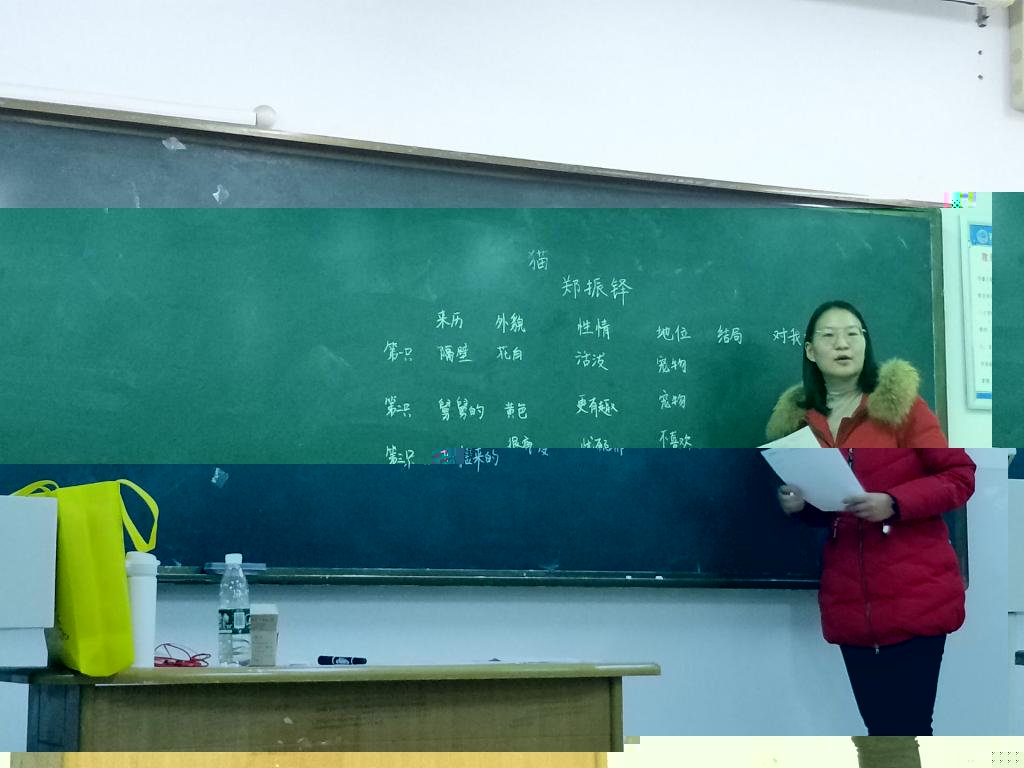 猫
郑振铎
来历 外貌 性情 地位 结局 对我
第一只 隔壁 花白 活泼 宠物
第二只 舅舅的 黄色 更有趣 宠物
第三只 来的 不喜欢